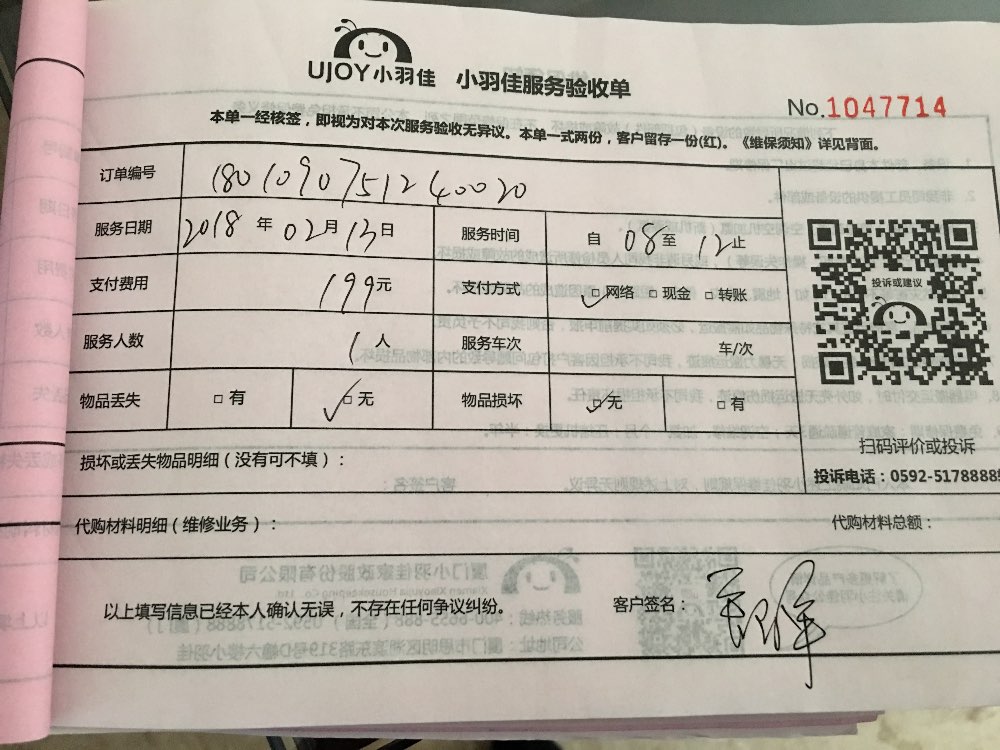 UJOY小羽佳 小羽佳服务验收单
No.1047714
本单一经核签，即视为对本次服务验收无异议。本单一式两份，客户留存一份(红)。《维保须知》详见背面。
订单编号 180109075124 0020
服务日期 2018年02月13日 服务时间 自08至12止
支付费用 199元 支付方式 ☑网络 □现金 □转账
服务人数 1人 服务车次 车/次
物品丢失 □有 ☑无 物品损坏 ☑无 □有
投诉或建议
扫码评价或投诉
投诉电话：0592-5178888
损坏或丢失物品明细（没有可不填）：
代购材料明细（维修业务）： 代购材料总额：
以上填写信息已经本人确认无误，不存在任何争议纠纷。 客户签名：